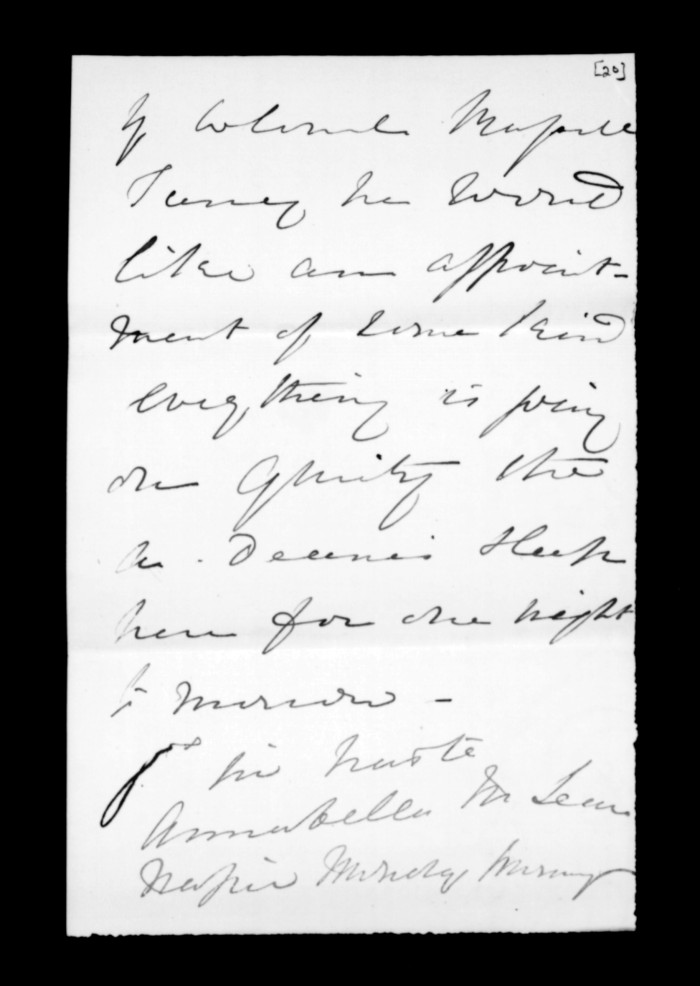 [20]
of Colonel
he would
like an appoint-
ment of some kind
everything is going
on quietly the
Dr. sleep
here for one night
to morrow -
Yr in haste
Annabella McLean
Napier Monday